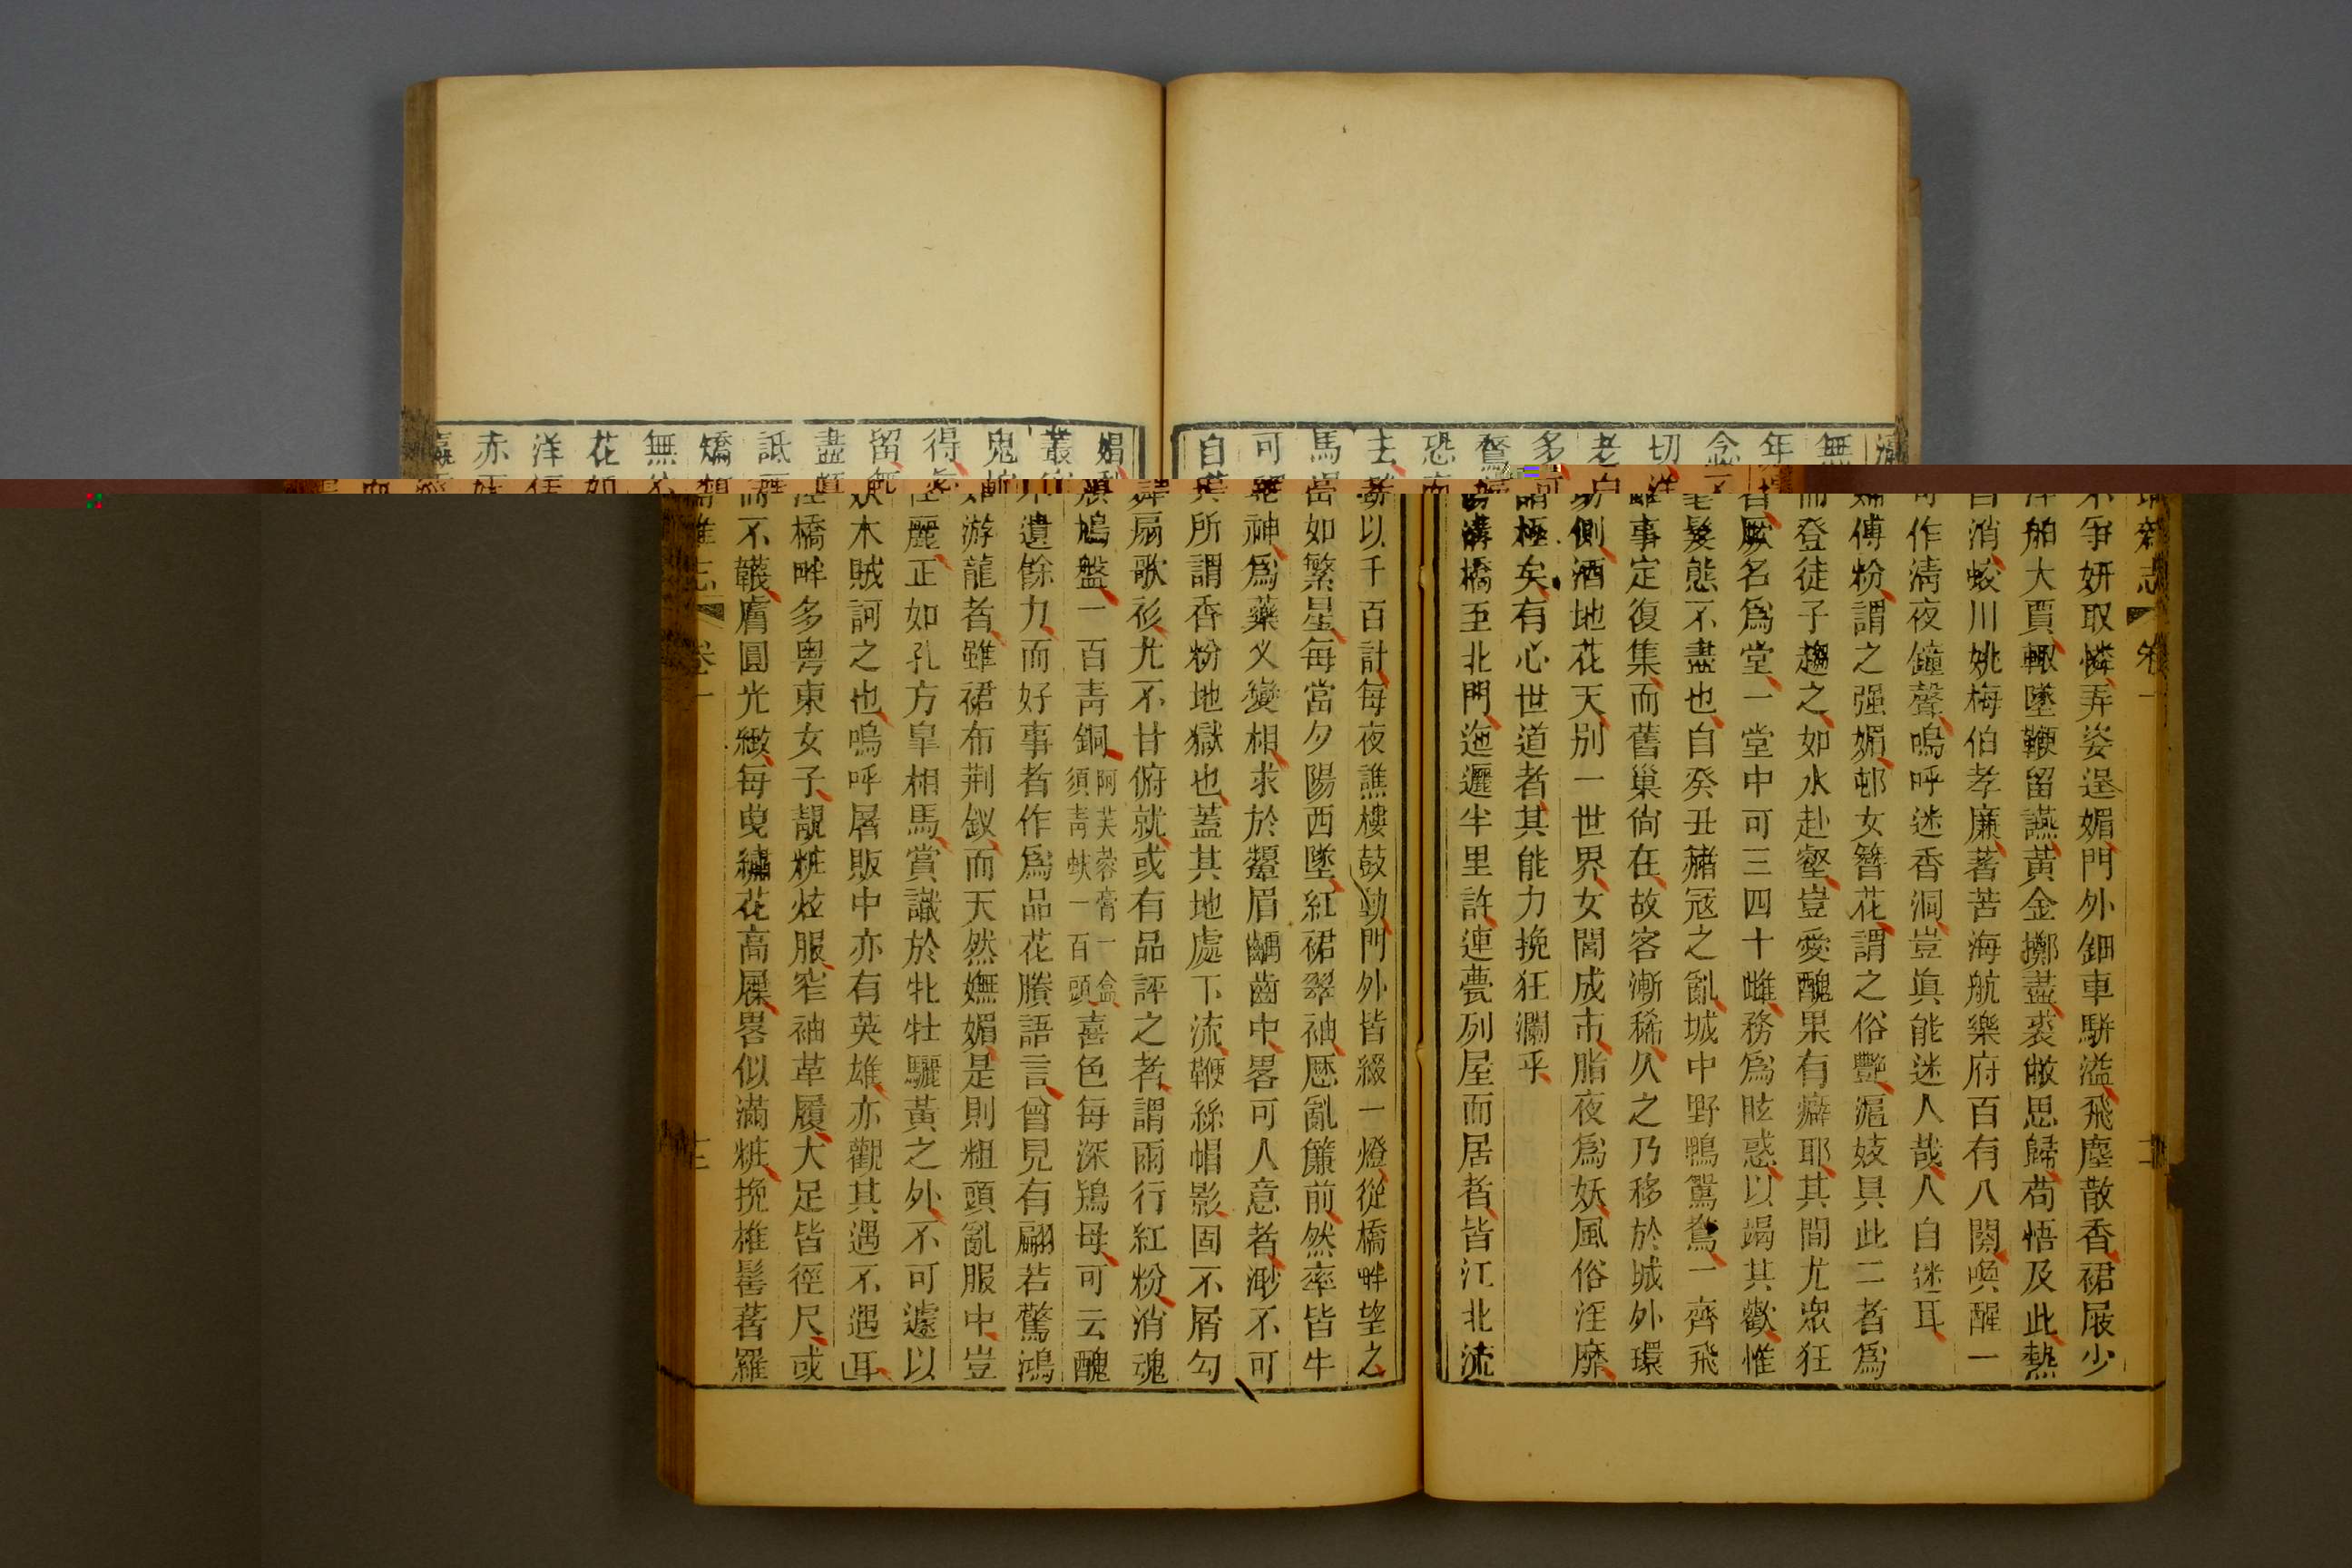 瑣雜志 卷一
無不爭妍取憐弄姿逞媚門外鈿車駢溢飛塵散香裙屐少
年洋舶大賈輙墜鞭留讌黃金擲盡裘敝思歸苟悟及此熱
念自消蛟川姚梅伯孝廉著苦海航樂府百有八闋喚醒一
切可作淸夜鐘聲嗚呼迷香洞豈眞能迷人哉人自迷耳
老婦傅粉謂之强媚邨女簪花謂之俗艷滬妓具此二者爲
多而登徒子趨之如水赴壑豈愛醜果有癖耶其間尤衆狂
鴦者厥名爲堂一堂中可三四十雌務爲眩惑以竭其歡惟
恐毫髮態不盡也自癸丑赭寇之亂城中野鴨鴛鴦一齊飛
去雖事定復集而舊巢尙在故客漸稀久之乃移於城外環
馬坊側酒地花天別一世界女閭成市脂夜爲妖風俗淫靡
可謂極矣有心世道者其能力挽狂瀾乎
自溝橋至北門迤邐半里許連甍列屋而居者皆江北流
娼以千百計每夜譙樓鼓動門外皆綴一燈從橋畔望之
叢當如繁星每當夕陽西墜紅裙翠袖歷亂簾前然率皆牛
鬼神爲藥叉變相求於顰眉齲齒中畧可人意者渺不可
得所謂香粉地獄也蓋其地處下流鞭絲帽影固不屑勾
留舞扇歌衫尤不甘俯就或有品評之者謂雨行紅粉消魂
盡鳩盤一百靑銅阿芙蓉膏一盒須靑蚨一百頭喜色每深鴇母可云醜
詆不遺餘力而好事者作爲品花牋語言曾見有翩若驚鴻
矯如游龍者雖裙布荆釵而天然嫵媚是則粗頭亂服中豈
無佳麗正如孔方臯相馬賞識於牝牡驪黃之外不可遽以
花妖木賊訶之也嗚呼屠販中亦有英雄亦觀其遇不遇耳
洋涇橋畔多粵東女子靚粧炫服窄袖革履大足皆徑尺或
赤而不韈膚圓光緻每曵繡花高屧畧似滿粧挽椎髻著羅
雜志 卷一 十二